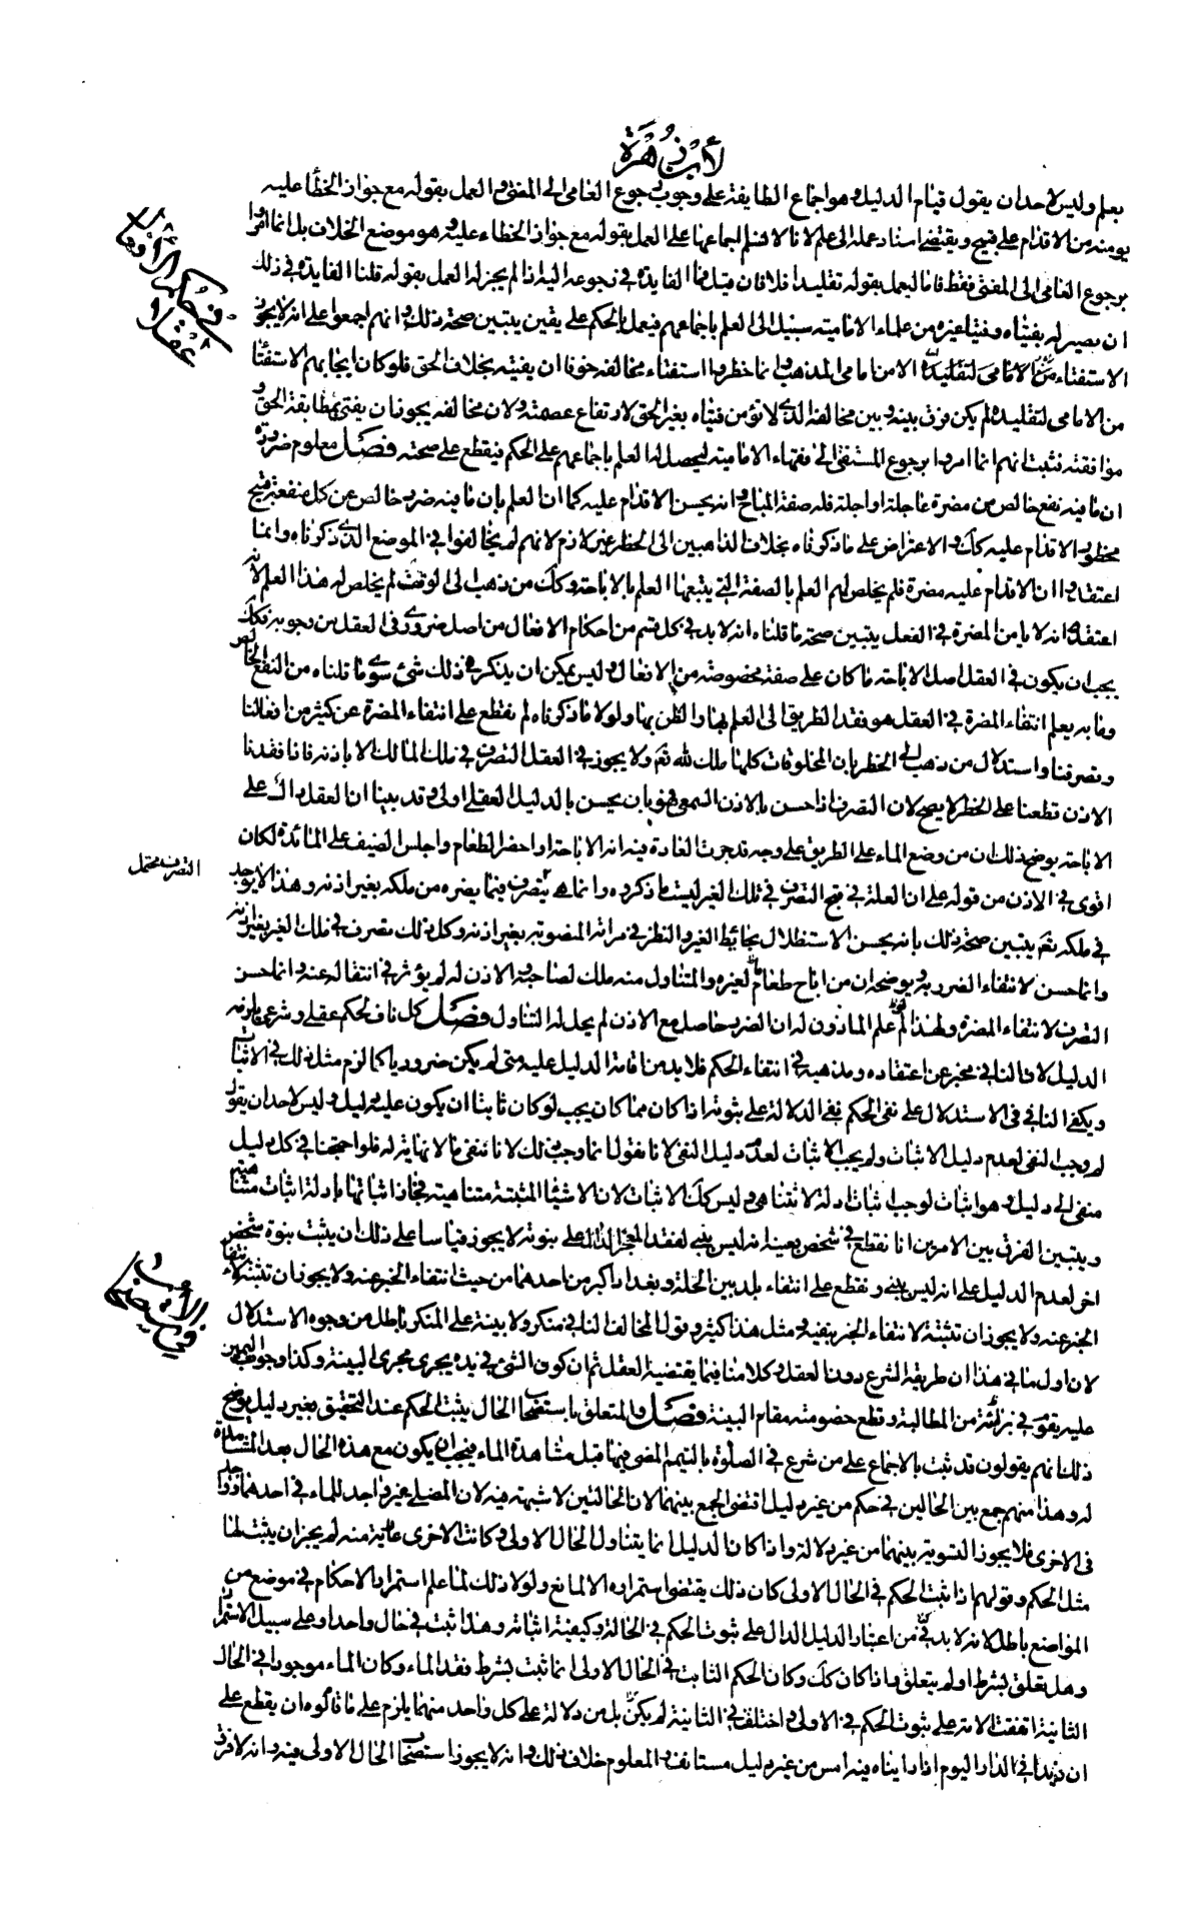 لابن زهرة
بعلم وليس لاحد ان يقول قيام الدليل وهو اجماع الطايفة على وجوب رجوع العامى الى المفتى والعمل بقوله مع جواز الخطأ عليه
يومنه من الاقدام على قبيح ويقتضى اسناد عمله الى علم لانا لا نسلم اجماعها على العمل بقوله مع جواز الخطاء عليه وهو موضع الخلاف بل انما امروا
برجوع العامى الى المفتى فقط فاما ليعمل بقوله تقليدا فلا فان قيل فما الفايدة فى رجوعه اليه اذا لم يجز له العمل بقوله قلنا الفايدة فى ذلك
ان يصير له بفتياه وفتيا غيره من علماء الامامية سبيل الى العلم باجماعهم فيعمل بالحكم على يقين يتبين صحة ذلك انهم اجمعوا على انه لا يجوز
الاستفتاء من الامامى لتقليده الا من امامى المذهب وانما حظروا استفتاء مخالفه خوفا ان يفتيه بخلاف الحق فلو كان ايجابهم الاستفتاء
من الامامى لتقليده لم يكن فرق بينه وبين مخالفه الذى لا تؤمن فتياه بغير الحق لارتفاع عصمته ولان مخالفه يجوز ان يفتى بمطابقة الحق و
موافقته فثبت انهم انما امروا برجوع المستفتى الى فقهاء الامامية ليحصل له العلم باجماعهم على الحكم فيقطع على صحته فصل معلوم ضرورة
ان ما فيه نفع خالص من مضرة عاجلة او اجلة فله صفة المباح وانه يحسن الاقدام عليه كما ان العلم بان ما فيه ضرر خالص عن كل منفعة قبيح
محظور الاقدام عليه كك والاعتراض على ما ذكرناه بخلاف الذاهبين الى الحظر غير لازم لانهم لم يخالفوا فى الموضع الذى ذكرناه وانما
اعتقدوا ان الاقدام عليه مضرة فلم يخلص لهم العلم بالصفة التى يتبعها العلم بالاباحة وكك من ذهب الى الوقف لم يخلص له هذا العلم لانه
اعتقد انه لا يامن المضرة فى الفعل يتبين صحة ما قلناه انه لا بد فى كل قسم من احكام الافعال من اصل ضرورى فى العقل من وجوبه فكك
يجب ان يكون فى العقل اصل الاباحة ما كان على صفة مخصوصة من الافعال وليس يمكن ان يذكر فى ذلك شئ سوى ما قلناه من النفع الخالص
وما به يعلم انتفاء المضرة فى العقل هو فقد الطريق الى العلم بها والظن بها ولولا ما ذكرناه لم نقطع على انتفاء المضرة عن كثير من افعالنا
وتصرفنا واستدلال من ذهب الى الحظر بان المخلوقات كلها ملك لله تع ولا يجوز فى العقل التصرف فى ملك المالك الا باذنه فاذا فقدنا
الاذن قطعنا على الحظر لا يصح لان التصرف اذا حسن بالاذن السمعى فهو بان يحسن بالدليل العقلى اولى وقد بينا ان العقل دال على
الاباحة يوضح ذلك ان من وضع الماء على الطريق على وجه قد جرت العادة فيه انه الاباحة او احضر الطعام واجلس الضيف على المائدة لكان
اقوى فى الاذن من قوله على ان العلة فى قبح التصرف فى ملك الغير ليست ما ذكره وانما هى تصرف فيما يضره من ملكه بغير اذنه وهذا لا يوجد
فى ملكه تع يتبين صحة ذلك بانه يحسن الاستظلال بحائط الغير والنظر فى مراته المنصوبة بغير اذنه وكل ذلك تصرف فى ملك الغير بغير اذنه
وانما حسن لانتفاء الضرر به يوضحه ان من اباح طعام لغيره والمتناول منه ملك لصاحبه والاذن له لم يؤثر فى انتقاله عنه وانما حسن
التصرف لانتفاء المضرة ولهذا لو علم الماذون له ان الضرر حاصل مع الاذن لم يحل له التناول فصل كل ناف لحكم عقلى وشرعى يلزمه
الدليل لان النافى مخبر عن اعتقاده ومذهبه فى انتفاء الحكم فلا بد من اقامة الدليل عليه متى لم يكن ضروريا كما لزم مثل ذلك فى الاثبات
ويكفى النافى فى الاستدلال على نفى الحكم نفى الدلالة على ثبوته اذا كان مما كان يجب لو كان ثابتا ان يكون عليه دليل وليس لاحد ان يقول
لم وجب النفى لعدم دليل الاثبات ولم يجب الاثبات لعدم دليل النفى لانا نقول انما وجب ذلك لانا ننفى ما لا نهاية له فلو احتجنا فى كل دليل
منفى الى دليل وهو اثبات لوجب اثبات ادلة لا تتناهى وليس كك الاثبات لان الاشياء المثبتة متناهية فجاز اثباتها بادلة اثبات متناهية
ويتبين الفرق بين الامرين انا نقطع فى شخص بعينه انه ليس بنبى لفقد المعجز الدال على نبوته لا يجوز قياسا على ذلك ان يثبت نبوة شخص
اخر لعدم الدليل على انه ليس بنبى ونقطع على انتفاء بلد بين الحلة وبغداد اكبر من احدهما من حيث انتفاء الخبر عنه ولا يجوز ان تثبته لانتفاء
الخبر عنه ولا يجوز ان تثبته لانتفاء الخبر بنفيه ومثل هذا كثير وقول المخالف لنا فى منكر ولا بينة على المنكر باطل من وجوه الاستدلال
لان اول ما فى هذا ان طريقه الشرع دون العقل وكلامنا فيما يقتضيه العقل ثم ان كون الشئ فى يده يجرى مجرى البينة وكذا وجوب اليمين
عليه يقوم فى برائة من المطالبة وقطع خصومته مقام البينة فصل والمتعلق باستصحاب الحال يثبت الحكم عند التحقيق بغير دليل يوضح
ذلك انهم يقولون قد ثبت بالاجماع على من شرع فى الصلوة بالتيمم المضى فيها قبل مشاهدة الماء فيجب ان يكون مع هذه الحال بعد المشاهدة
له وهذا منهم جمع بين الحالين فى حكم من غير دليل اقتضى الجمع بينهما لان الحالتين لا شبهة فيه لان المصلى غير واجد للماء فى احدهما واجد
فى الاخرى فلا يجوز التسوية بينهما من غير دلالة واذا كان الدليل انما يتناول الحال الاولى وكانت الاخرى عارية منه لم يجز ان يثبت لها
مثل الحكم وقولهم اذا ثبت الحكم فى الحال الاولى كان ذلك يقتضى استمراره الا لمانع ولولا ذلك لما علم استمرار الاحكام فى موضع من
المواضع باطل لانه لا بد فى من اعتبار الدليل الدال على ثبوت الحكم فى الحالة وكيفية اثباته وهذا ثبت فى حال واحد او على سبيل الاستمرار
وهل تعلق بشرط او لم يتعلق واذا كان كك وكان الحكم الثابت فى الحال الاولى انما ثبت بشرط فقد الماء وكان الماء موجودا فى الحال
الثانية اتفقت الامة على ثبوت الحكم فى الاولى واختلف فى الثانية لم يكن بل من دلالة على كل واحد منهما يلزم على ما قالوه ان يقطع على
ان زيدا فى الدار اليوم اذا رايناه فيه امس من غير دليل مستانف والمعلوم خلاف ذلك وانه لا يجوز استصحاب الحال الاولى فيه وانه لا فرق
التصرف محتمل